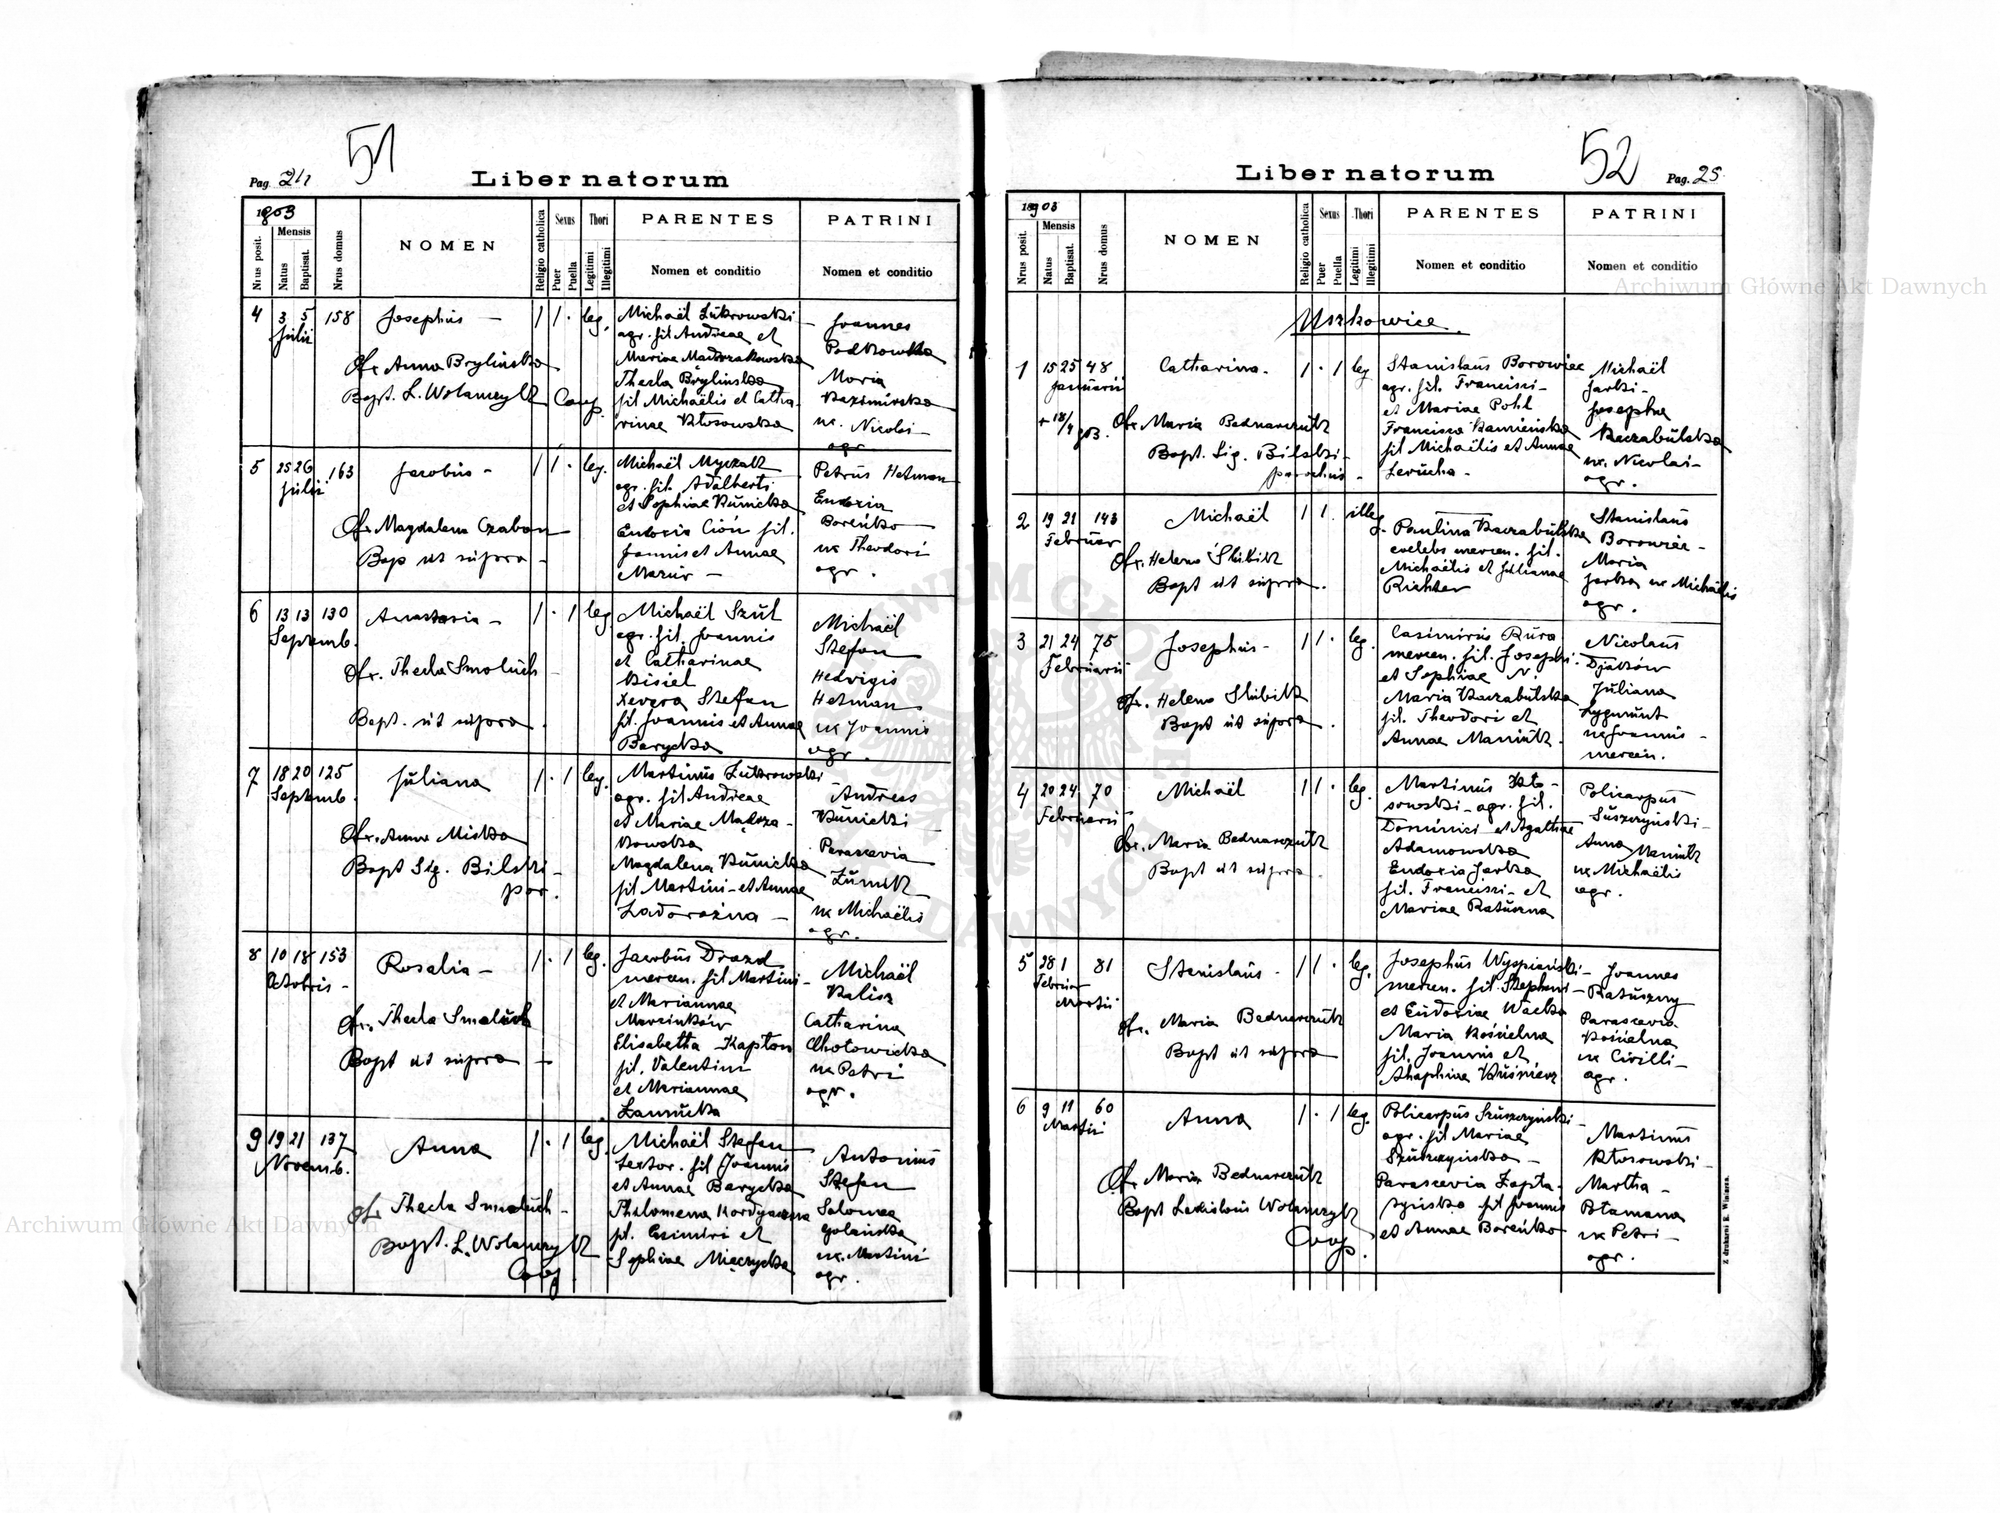 51
Pag. 24
Liber natorum
1903
Mensis
Nrus posit.
Natus
Baptisat.
Nrus domus
NOMEN
Religio catholica
Sexus
Puer
Puella
Thori
Legitimi
Illegitimi
PARENTES
Nomen et conditio
PATRINI
Nomen et conditio
4 3 5 158 Josephus — 1 1 . leg.
Julii
Obs. Anna Brylinska
Bapt. L. Wolanczyk Coop.
Michaël Lukrowski
agr. fil. Andreae et
Mariae
Thecla Brylinska
fil Michaëlis et Catha-
rinae Kłosowska
Joannes
Podkowka
Maria
Kazimirska
ux. Nicolai
agr.
5 25 26 163 Jacobus - 1 1 . leg.
Julii
Obs. Magdalena Czaban
Bap ut supra -
Michaël Myczak
agr. fil. Adalberti
et Sophiae Kunicka
Eudoxia Cioń fil.
Joannis et Annae
Mazur —
Petrus Hetman
Eudoxia
Boreńko
ux Theodori
agr.
6 13 13 130 Anastasia - 1 . 1 leg
Septemb.
Obs. Thecla Smoluch
Bapt. ut supra
Michaël Szul
agr. fil. Joannis
et Catharinae
Kisiel
Xevera Stefan
fil. Joannis et Annae
Barycka
Michaël
Stefan
Hedvigis
Hetman
ux Joannis
agr.
7 18 20 125 Juliana 1 . 1 leg.
Septemb.
Obs. Anna Miska
Bapt Sig. Bilski -
par.
Martinus Lukrowski
agr. fil Andreae
et Mariae Mądrza-
kowska
Magdalena Kunicka
fil Martini - et Annae
Zadorożna —
Andreas
Kunicki
Parascevia
Łunik
ux Michaëlis
agr.
8 10 18 153 Rosalia - 1 . 1 leg.
Octobris -
Obs. Thecla Smoluch
Bapt ut supra —
Jacobus Drozd
mercen. fil Martini -
et Mariannae
Marcinków
Elisabetha Kapton
fil. Valentini
et Mariannae
Michaël
Kalisz
Catharina
Chotowicka
ux Petri
agr.
9 19 21 137 Anna 1 . 1 leg.
Novemb.
Obs. Thecla Smoluch -
Bapt. L. Wolanczyk
Coop.
Michaël Stefan
textor. fil Joannis
et Annae Barycka
Philomena
fil. Casimiri et
Sophiae Mięczycka
Antonius
Stefan
Salomea
Golańska
ux. Martini
agr.
52
Liber natorum
Pag. 25
1903
Mensis
Nrus posit.
Natus
Baptisat.
Nrus domus
NOMEN
Religio catholica
Sexus
Puer
Puella
Thori
Legitimi
Illegitimi
PARENTES
Nomen et conditio
PATRINI
Nomen et conditio
Uszkowice.
1 15 25 48 Catharina. 1 . 1 leg
Januarii
+ 18/4 903.
Obs. Maria Bednarczuk
Bapt. Sig. Bilski -
parochus -
Stanislaus Borowiec
agr. fil. Francisci -
et Mariae Pohl
Francisca Kamieńska
fil Michaëlis et Annae
Levucha -
Michaël
Jarki -
Josepha
Kaczabulska
ux. Nicolai -
agr.
2 19 21 143 Michaël 1 1 . illeg.
Februar
Obs. Helena Skibik
Bapt ut supra .
Paulina Kaczabulska
coelebs mercen. fil.
Michaëlis et Julianae
Richter
Stanislaus
Borowiec -
Maria
Jarka ux Michaëlis
agr.
3 21 24 75 Josephus - 1 1 . leg.
Februarii
Obs. Helena Skibik
Bapt ut supra .
Casimirus Rura
mercen. fil. Josephi -
et Sophiae N.
Maria Kaczabulska
fil. Theodori et
Annae Maniuk.
Nicolaus
Djaków
Juliana
Zygmunt
ux Joannis -
mercen.
4 20 24 70 Michaël 1 1 . leg.
Februarii
Obs. Maria Bednarczuk
Bapt ut supra .
Martinus Kło-
sowski - agr. fil.
Dominici et Agathae
Adamowska
Eudoxia Jarka
fil. Francisci - et
Mariae Ratuszna
Policarpus
Suszczyński -
Anna Maniuk
ux Michaëlis
agr.
5 28 1 81 Stanislaus - 1 1 . leg.
Februar
Martii
Obs. Maria Bednarczuk
Bapt ut supra
Josephus Wyspiański -
mercen. fil. Stephani -
et Eudoxiae Wacko
Maria Kościelna
fil. Joannis et
Ahaphiae Kuśnierz
Joannes
Ratuszny
Parascevia
Kościelna
ux Cirilli -
agr.
6 9 11 60 Anna 1 . 1 leg.
Martii
Obs. Maria Bednarczuk
Bapt Ladislaus Wolanczyk
Coop.
Policarpus Szuszczyński -
agr. fil Mariae
Szuszczyńska —
Parascevia Łopta-
szyńska fil Joannis
et Annae Boreńko
Martinus
Kłosowski -
Martha -
Ptamana
ux Petri -
agr.
Z drukarni E. Winiarza.
Archiwum Główne Akt Dawnych
Archiwum Główne Akt Dawnych